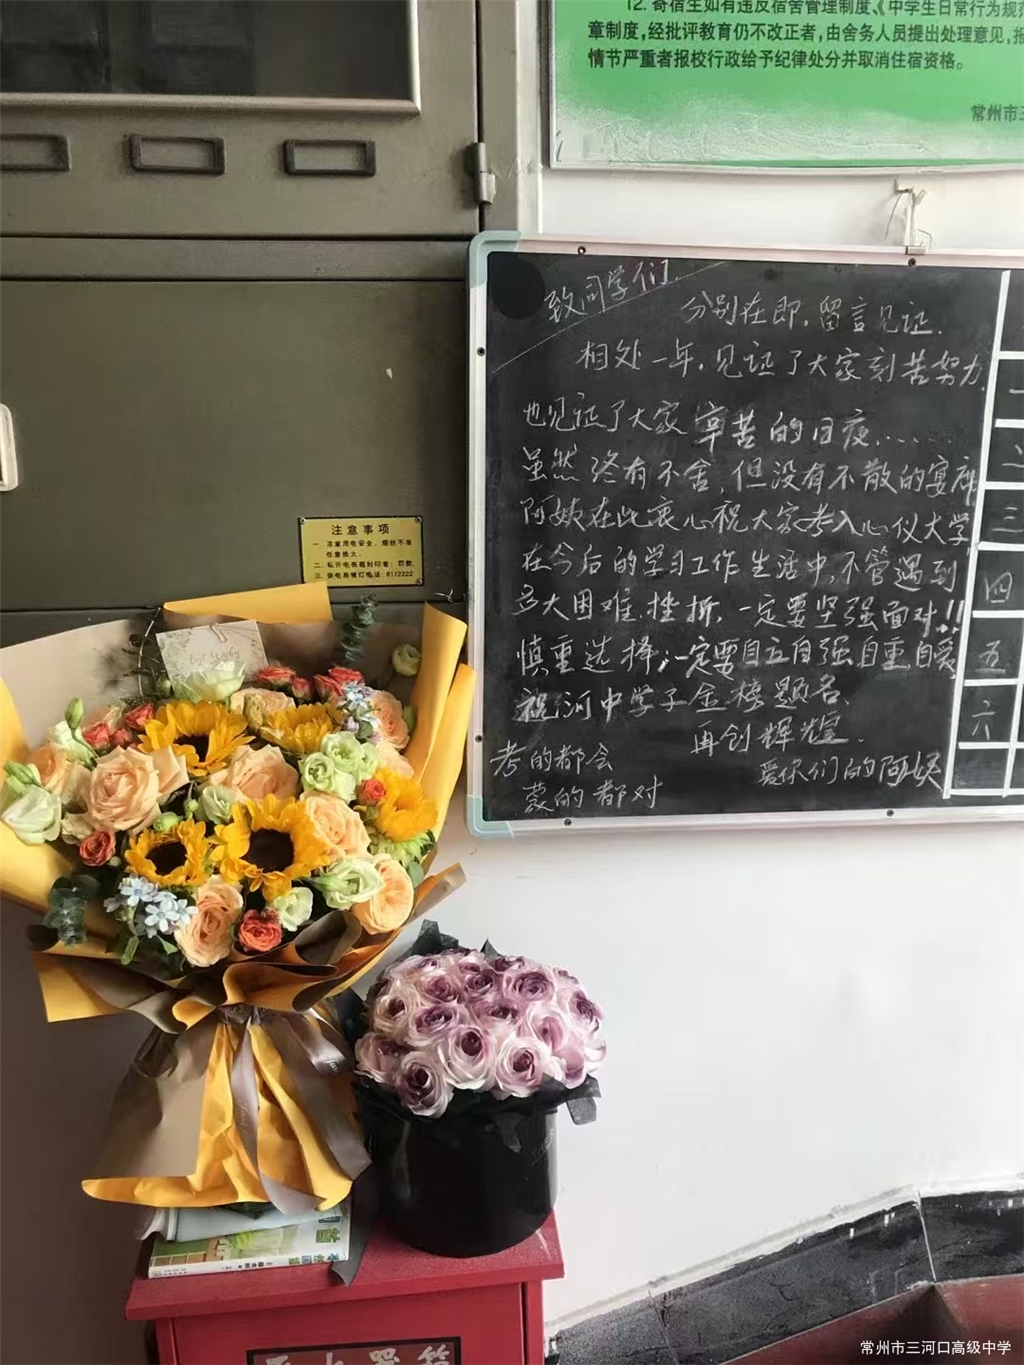 12. 寄宿生如有违反宿舍管理制度、《中学生日常行为规范
章制度，经批评教育仍不改正者，由舍务人员提出处理意见，报
情节严重者报校行政给予纪律处分并取消住宿资格。
常州市三
致同学们.
分别在即，留言见证.
相处一年，见证了大家刻苦努力
也见证了大家辛苦的日夜……
虽然终有不舍，但没有不散的宴席
阿姨在此衷心祝大家考入心仪大学
在今后的学习工作生活中，不管遇到
多大困难.挫折，一定要坚强面对!!
慎重选择;一定要自立自强自重自爱
祝河中学子金榜题名、
再创辉煌.
爱你们的阿姨
考的都会
蒙的都对
一
二
三
四
五
六
注意事项
一、注意用电安全，熔丝不准
任意换大。
二、私开电表箱封印者；罚款。
三、供电局修灯电话：8112222
常州市三河口高级中学